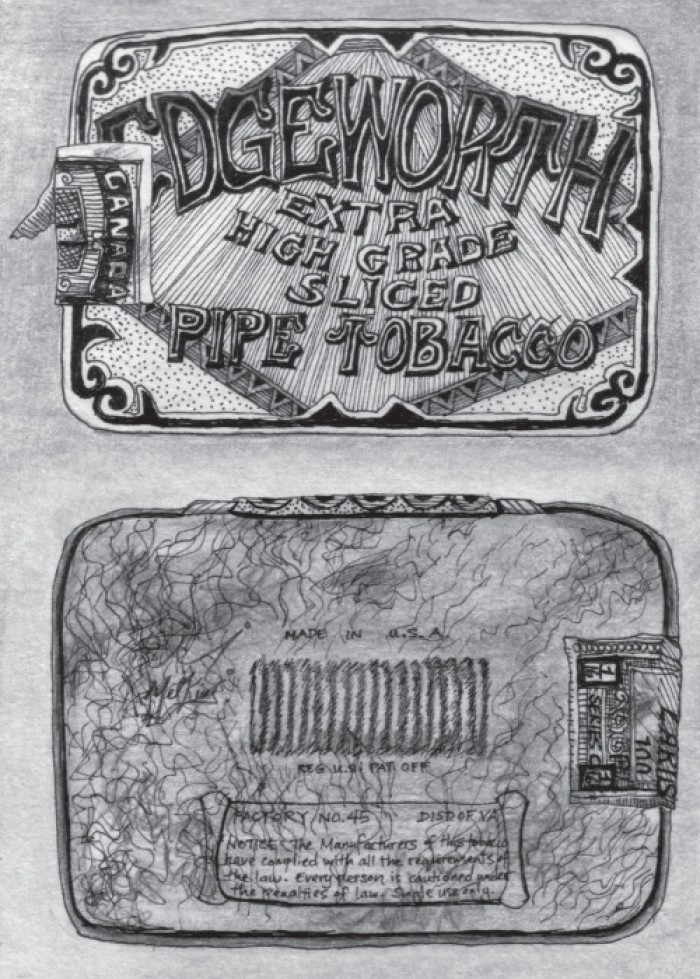 EDGEWORTH
EXTRA
HIGH GRADE
SLICED
PIPE TOBACCO
CANADA
MADE IN U.S.A.
REG U.S. PAT OFF
FACTORY NO. 45 DIST OF VA
NOTICE: The Manufacturers of this tobacco
have complied with all the requirements of
the law. Every person is cautioned under
the penalties of law. Single use only.
SERIES C